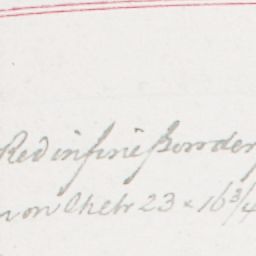 Red in fine powder
on Chelr 23 x 16 3/4